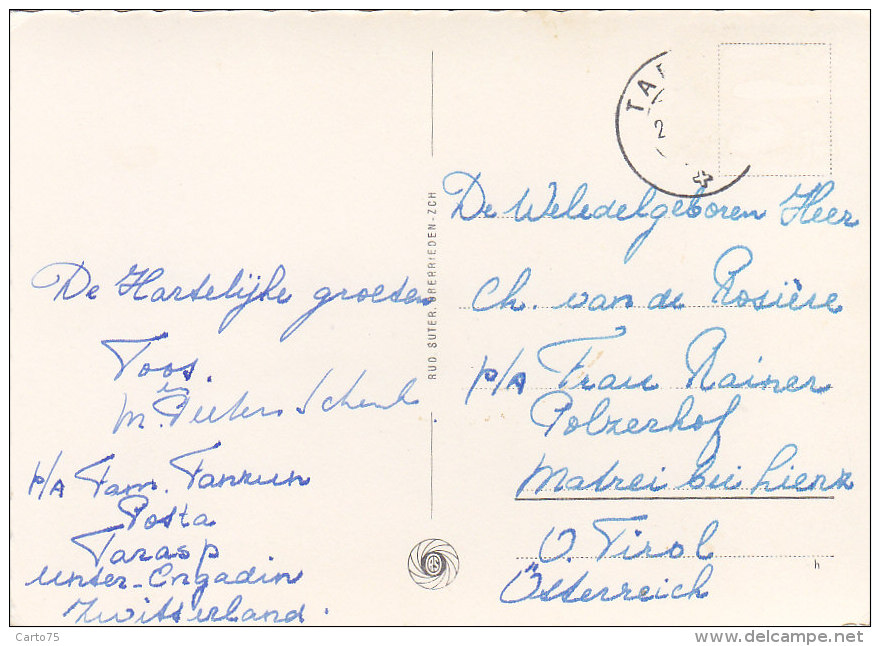 De Hartelijke groeten
Toos.
en
M. Peeters Schenk
p/A Fam. Fanzun
Posta
Tarasp
Unter-Engadin
Zwitserland.
RUD. SUTER, OBERRIEDEN-ZCH
TAR
2
De Weledelgeboren Heer
Ch. van de Rosière
p/A Frau Rainer
Polzerhof
Matrei bei Lienz
O. Tirol
Österreich
h
Carto75
www.delcampe.net